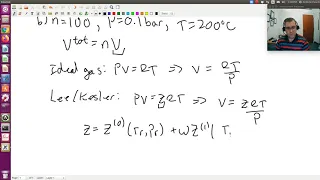 b) n=100, P=0.1bar, T=200°C
V^tot = nV
Ideal gas: PV=RT => V = RT/P
Lee/Kesler: PV=ZRT => V = ZRT/P
Z = Z^(0)(Tr,Pr) + ωZ^(1)( T